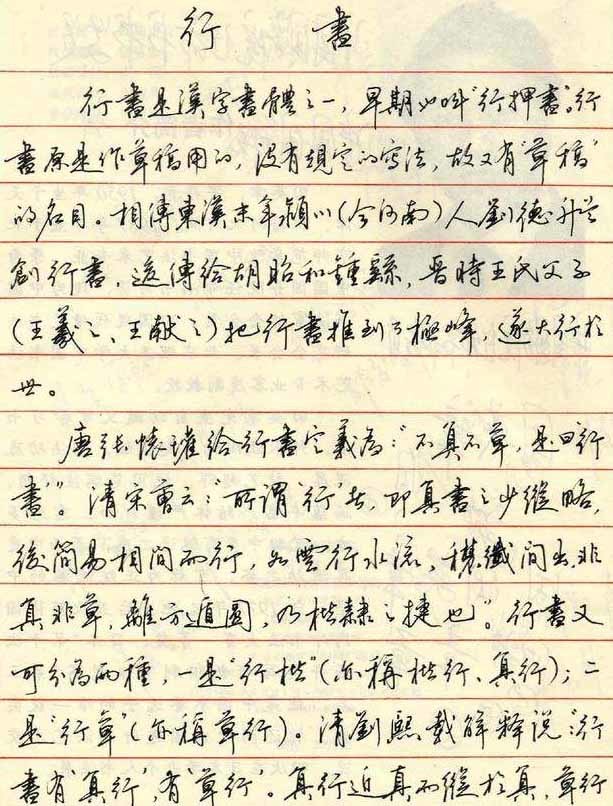 行書
行書是漢字書體之一,早期也叫“行押書”。行
書原是作草稿用的,沒有規定的寫法,故又有“草稿”
的名目。相傳東漢末年潁川(今河南)人劉德升首
創行書,遂傳給胡昭和鍾繇,晉時王氏父子
(王羲之、王献之)把行書推到了極峰,遂大行於
世。
唐張懷瓘給行書定義為:“不真不草,是曰‘行
書’”。清宋曹云:“所謂行者,即真書之少縱略,
後簡易相間而行,如雲行水流,穠纖間出,非
真非草,離方遁圓,乃楷隸之捷也”。行書又
可分為兩種,一是“行楷”(亦稱楷行、真行);二
是“行草”(亦稱草行)。清劉熙載解释説:“行
書有‘真行’,有‘草行’。真行近真而縱於真,草行